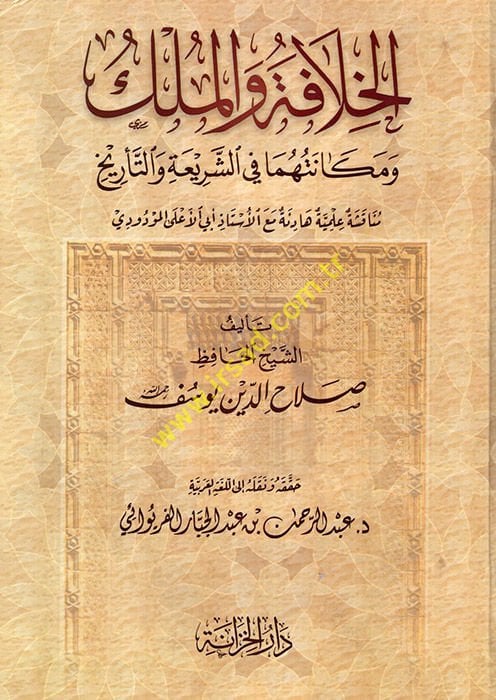 الخِلَافَةُ وَالمُلْكُ
وَمَكَانَتُهُمَا فِي الشَّرِيعَةِ وَالتَّأْرِيخِ
مُنَاقَشَةٌ عِلْمِيَّةٌ هَادِئَةٌ مَعَ الأُسْتَاذِ أَبِي الأَعْلَى المَوْدُودِيّ
تَأْلِيفُ
الشَّيْخِ الحَافِظِ
صَلَاحِ الدِّينِ يُوسُفَ رحمه الله
www.irsad.com.tr
حَقَّقَهُ وَنَقَلَهُ إِلَى اللُّغَةِ العَرَبِيَّةِ
د. عَبْدُ الرَّحْمٰنِ بْنُ عَبْدِ الجَبَّارِ الفَرِيوَائِي
دَارُ الخِزَانَةِ